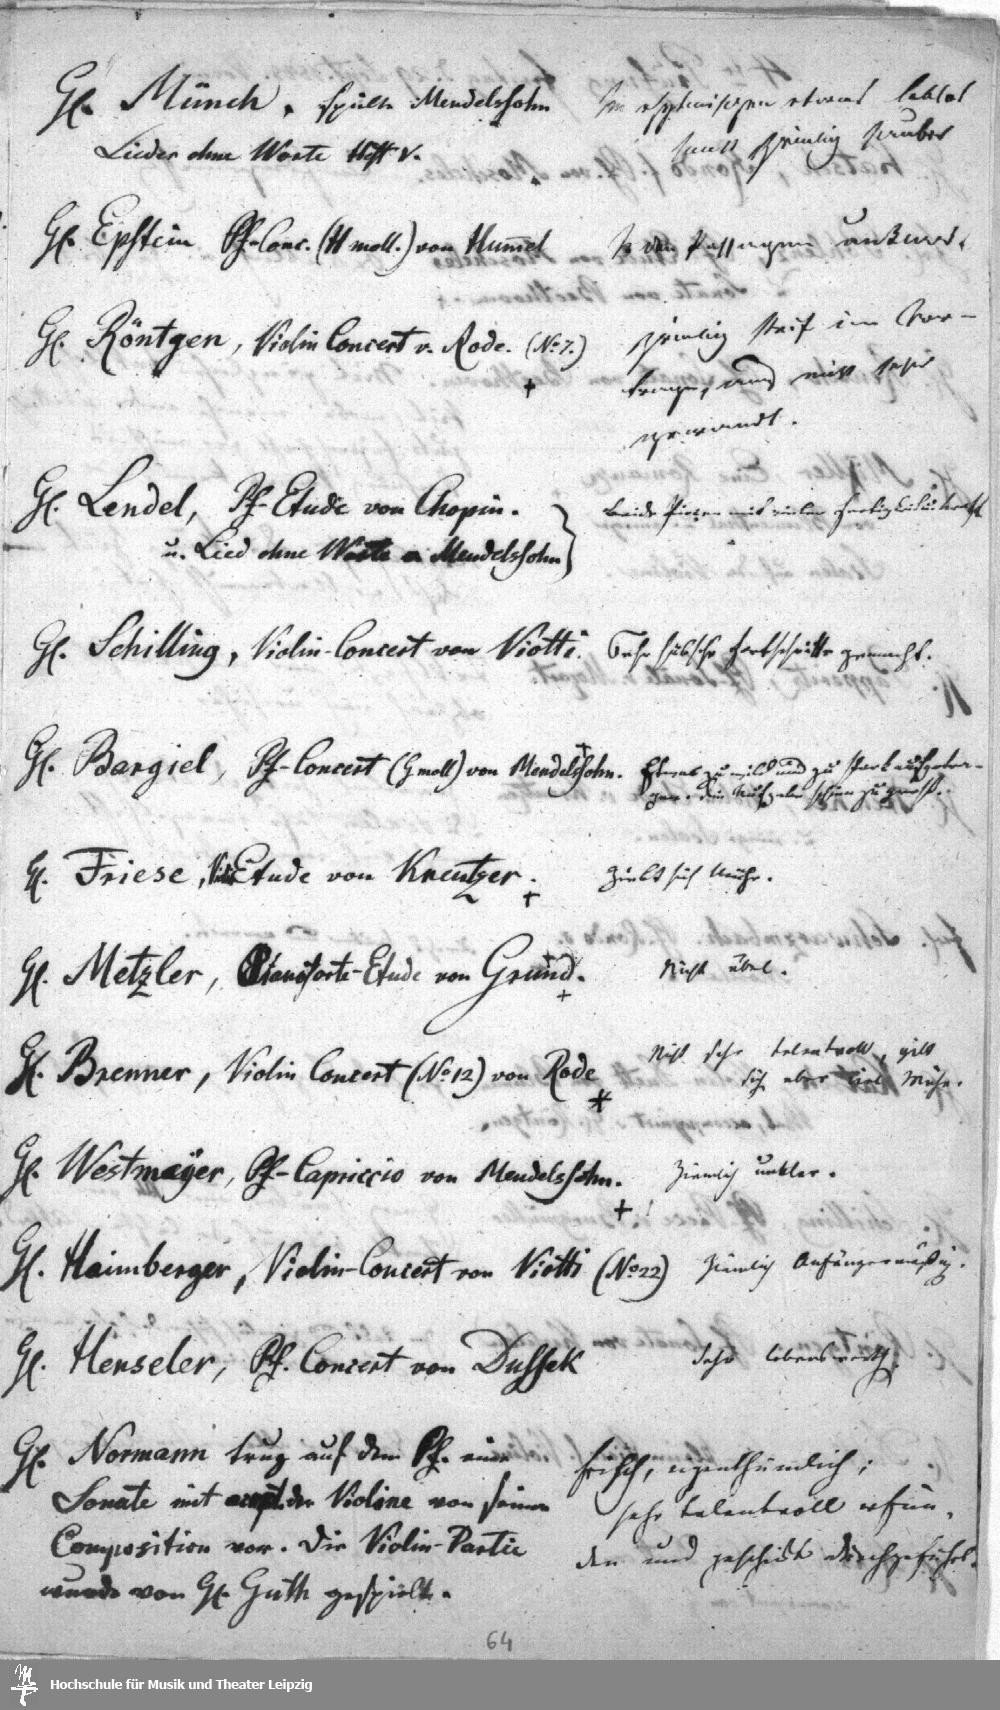 H. Münch, spielte Mendelssohn
Lieder ohne Worte Heft V.
Im rhythmischen etwas
sonst ziemlich sauber
H. Epstein Pf-Conc. (H moll.) von Hummel
In den Passagen
H. Röntgen, Violin Concert v. Rode. (No 7.)
ziemlich steif im Vor-
trage, und nicht sehr
gewandt.
H. Lendel, Pf-Etude von Chopin.
u. Lied ohne Worte v Mendelssohn
beide Piecen mit vieler Fertigkeit u. Kraft
H. Schilling, Violin-Concert von Viotti. Sehr hübsche Fortschritte gemacht.
H. Bargiel, Pf-Concert (G moll) von Mendelssohn.
Etwas zu wild und zu stark aufgetra-
gen. die Aufgabe schien zu groß.
H. Friese, Viol. Etude von Kreutzer.
Giebt sich Mühe.
H. Metzler, Pianoforte-Etude von Grund.
Nicht übel.
H. Brenner, Violin Concert (No 12) von Rode
Nicht sehr talentvoll, giebt
sich aber viel Mühe.
H. Westmaÿer, Pf-Capriccio von Mendelssohn.
Ziemlich unklar.
H. Haimberger, Violin-Concert von Viotti (No 22)
Ziemlich Anfängermäßig.
H. Henseler, Pf. Concert von Dussek
Sehr lobenswerth.
H. Normann trug auf dem Pf. eine
Sonate mit der Violine von seiner
Composition vor. Die Violin-Partie
wurde von H. Guth gespielt.
frisch, eigenthümlich;
sehr talentvoll erfun-
den und geschickt durchgeführt.
64
Hochschule für Musik und Theater Leipzig